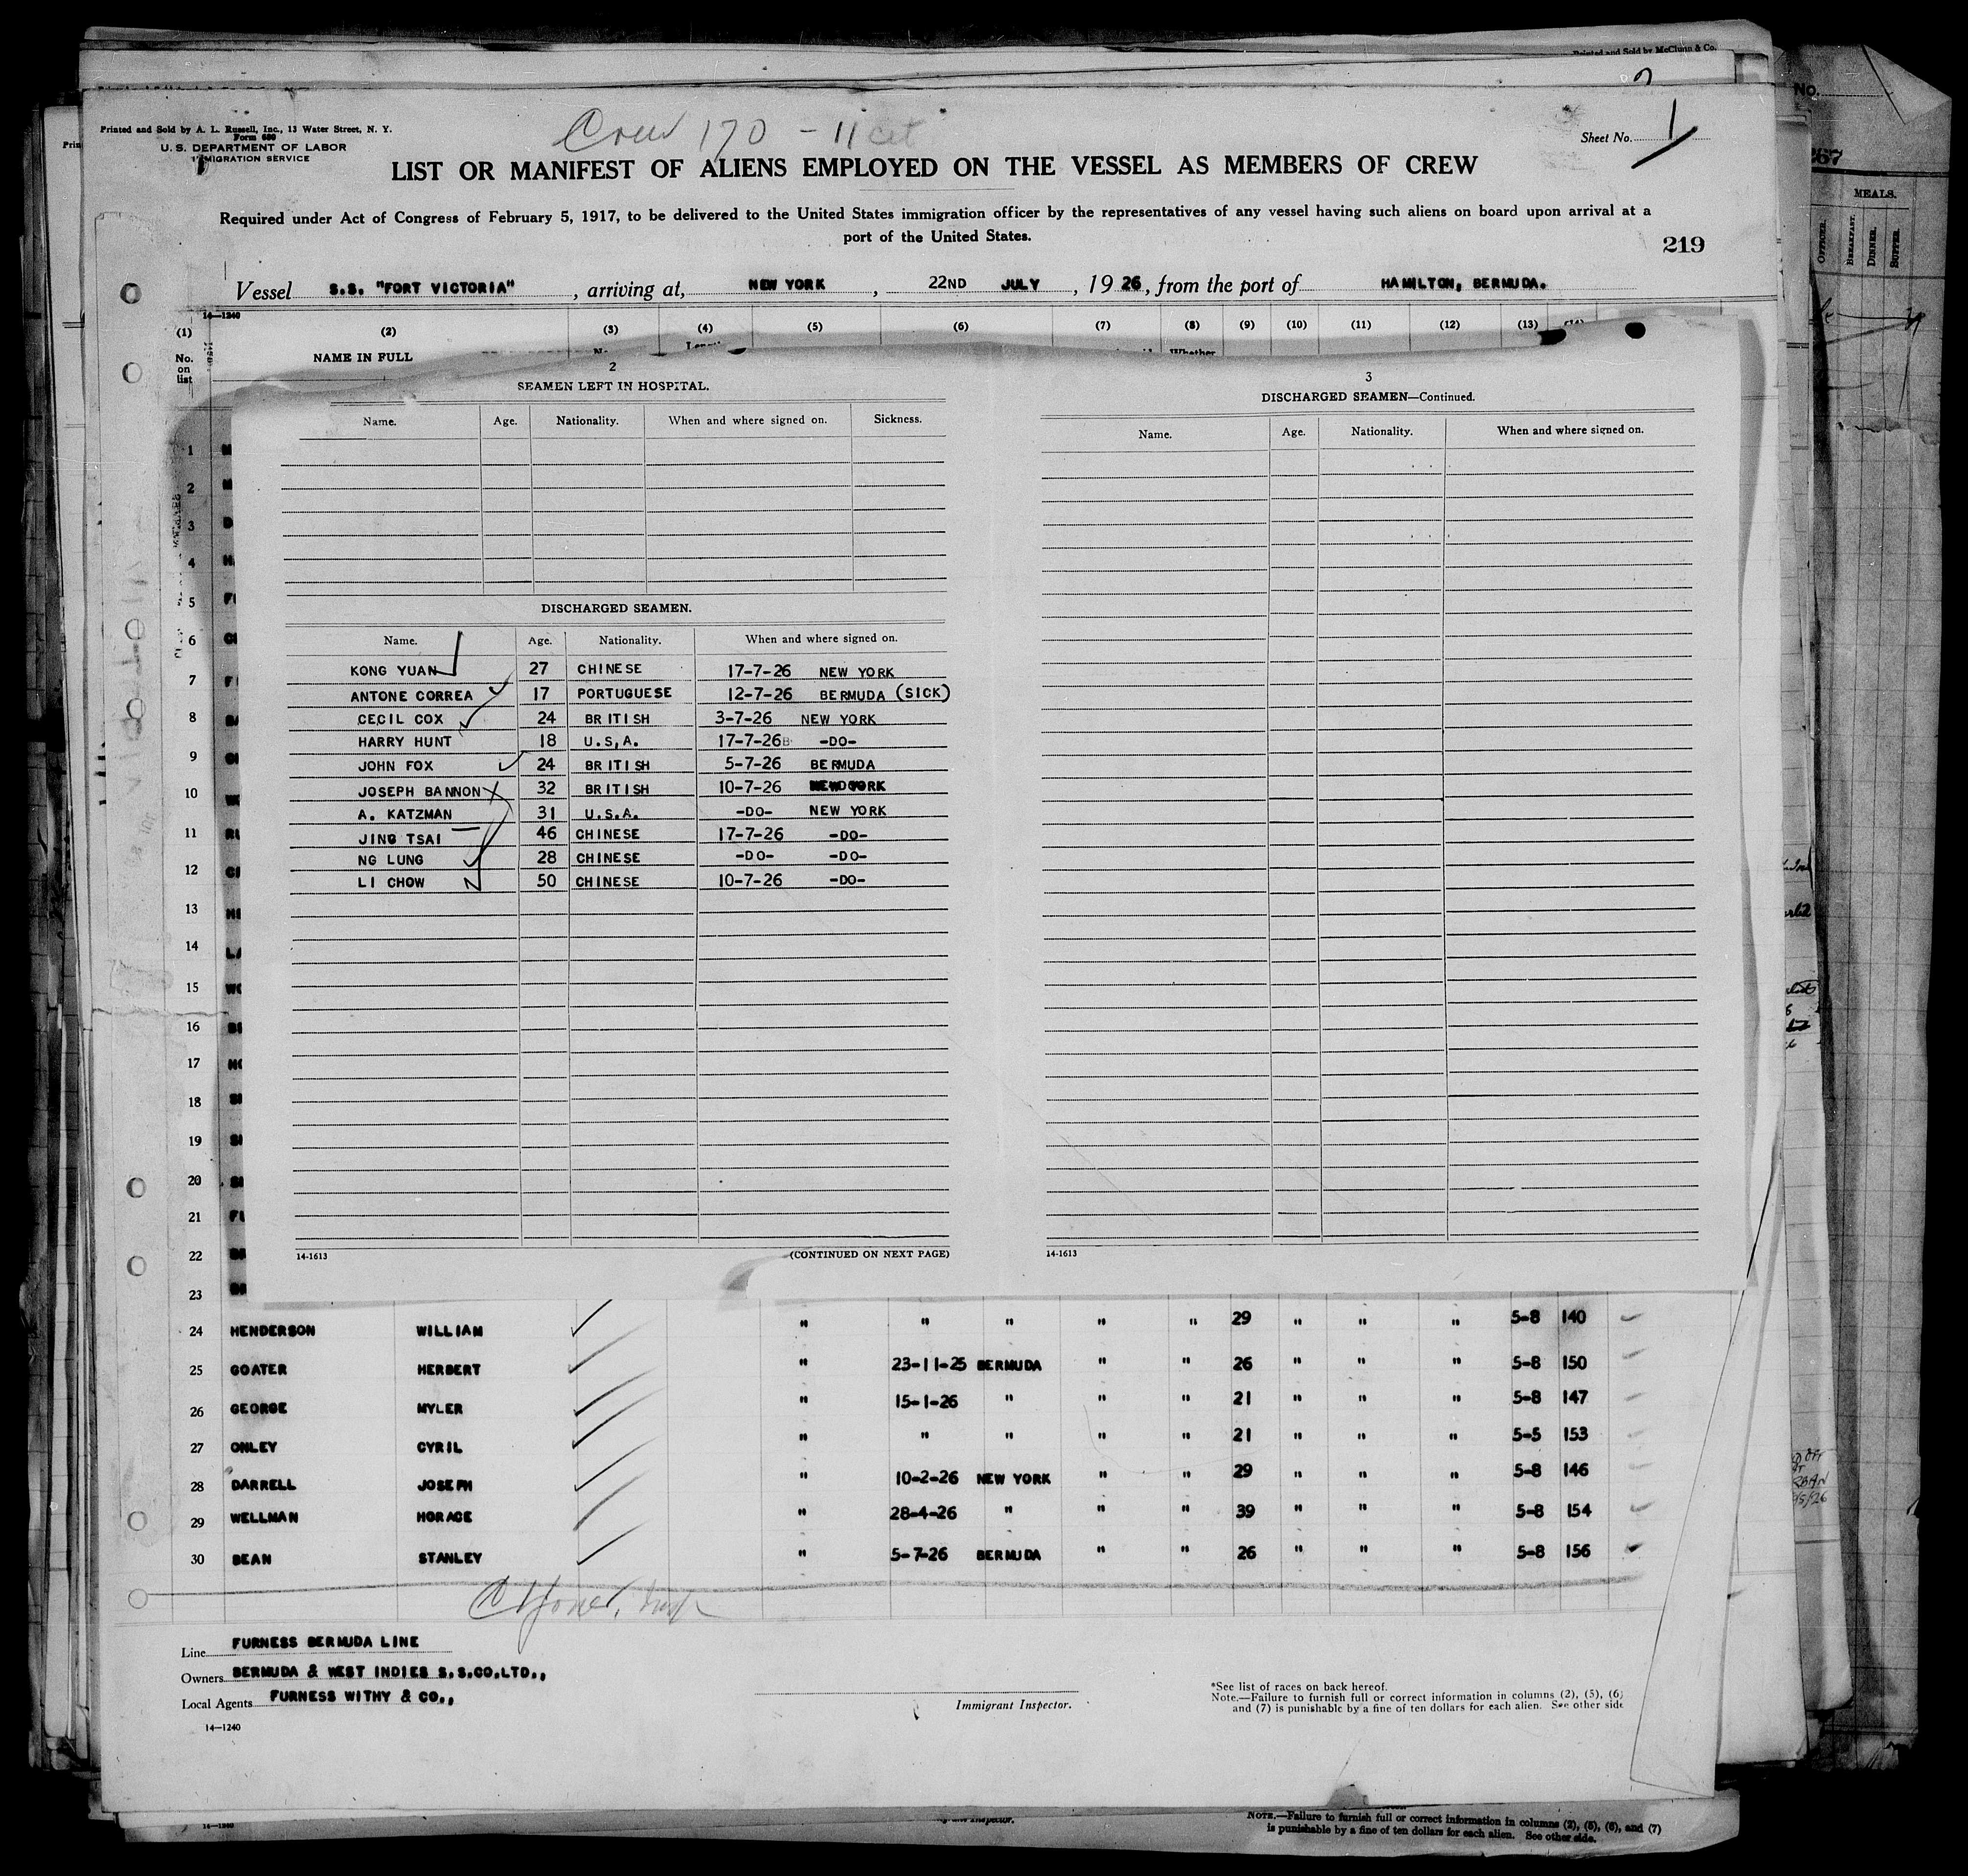 Printed and Sold by McClunn & Co.
No.
267
MEALS.
OFFICER. BREAKFAST. DINNER. SUPPER.
Printed and Sold by A. L. Russell, Inc., 13 Water Street, N. Y.
Form 680
U. S. DEPARTMENT OF LABOR
IMMIGRATION SERVICE
Crew 170 - 11
Sheet No. 1
LIST OR MANIFEST OF ALIENS EMPLOYED ON THE VESSEL AS MEMBERS OF CREW
Required under Act of Congress of February 5, 1917, to be delivered to the United States immigration officer by the representatives of any vessel having such aliens on board upon arrival at a
port of the United States.
219
Vessel S.S. "FORT VICTORIA", arriving at, NEW YORK, 22ND JULY, 1926, from the port of HAMILTON, BERMUDA.
14—1240
(1) (2) (3) (4) (5) (6) (7) (8) (9) (10) (11) (12) (13)
No. on list
NAME IN FULL
Whether
2
SEAMEN LEFT IN HOSPITAL.
Name. Age. Nationality. When and where signed on. Sickness.
DISCHARGED SEAMEN.
Name. Age. Nationality. When and where signed on.
KONG YUAN 27 CHINESE 17-7-26 NEW YORK
ANTONE CORREA 17 PORTUGUESE 12-7-26 BERMUDA (SICK)
CECIL COX 24 BRITISH 3-7-26 NEW YORK
HARRY HUNT 18 U.S.A. 17-7-26 -DO-
JOHN FOX 24 BRITISH 5-7-26 BERMUDA
JOSEPH BANNON 32 BRITISH 10-7-26 NEW YORK
A. KATZMAN 31 U.S.A. -DO- NEW YORK
JING TSAI 46 CHINESE 17-7-26 -DO-
NG LUNG 28 CHINESE -DO- -DO-
LI CHOW 50 CHINESE 10-7-26 -DO-
14-1613 (CONTINUED ON NEXT PAGE)
3
DISCHARGED SEAMEN—Continued.
Name. Age. Nationality. When and where signed on.
14-1613
1
2
3
4
5
6
7
8
9
10
11
12
13
14
15
16
17
18
19
20
21
22
23
24 HENDERSON WILLIAM " " " " " 29 " " " 5-8 140
25 GOATER HERBERT " 23-11-25 BERMUDA " " 26 " " " 5-8 150
26 GEORGE MYLER " 15-1-26 " " " 21 " " " 5-8 147
27 ONLEY CYRIL " " " " " 21 " " " 5-5 153
28 DARRELL JOSEPH " 10-2-26 NEW YORK " " 29 " " " 5-8 146
29 WELLMAN HORACE " 28-4-26 " " " 39 " " " 5-8 154
30 BEAN STANLEY " 5-7-26 BERMUDA " " 26 " " " 5-8 156
Line FURNESS BERMUDA LINE
Owners BERMUDA & WEST INDIES S.S.CO.LTD.,
Local Agents FURNESS WITHY & CO.,
14—1240
Immigrant Inspector.
*See list of races on back hereof.
Note.—Failure to furnish full or correct information in columns (2), (5), (6)
and (7) is punishable by a fine of ten dollars for each alien. See other side
14—1240
Inspector.
NOTE.—Failure to furnish full or correct information in columns (2), (5), (6), and (7)
is punishable by a fine of ten dollars for each alien. See other side.